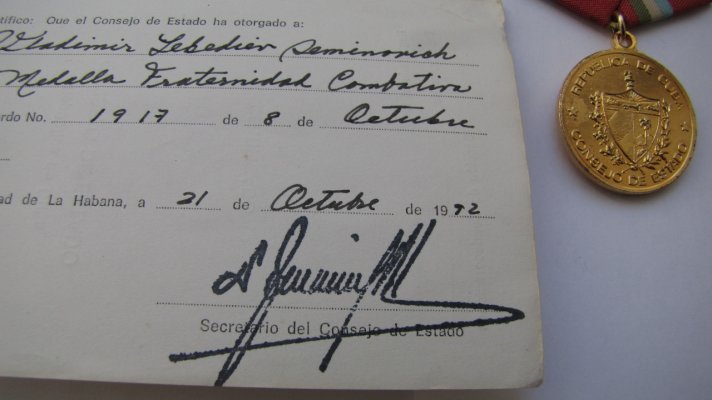 tifico: Que el Consejo de Estado ha otorgado a:
Vladimir Lebediev Seminovich
Medalla Fraternidad Combativa
rdo No. 1917 de 8 de Octubre
ad de La Habana, a 21 de Octubre de 1992
Secretario del Consejo de Estado
REPUBLICA DE CUBA
CONSEJO DE ESTADO